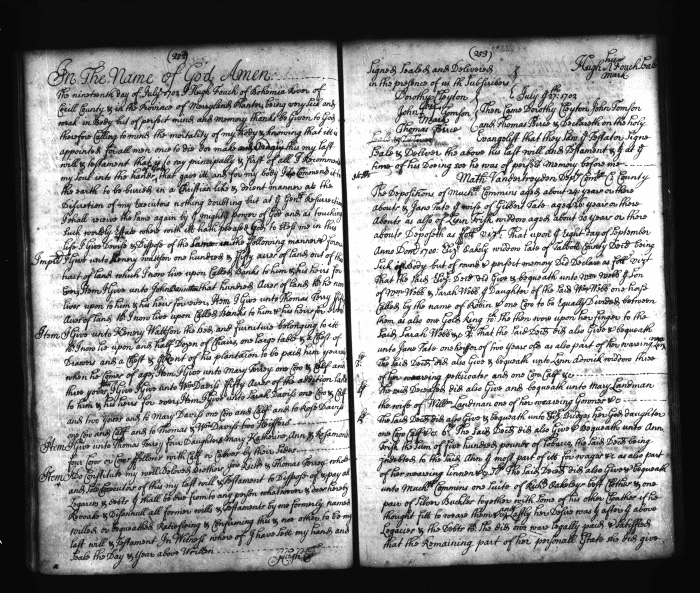 (252)
In The Name of God Amen
The nineteenth day of July 1703 I Hugh Fouch of Bohemia River of
Cecill County & in the Province of Maryland planter being very sick and
weak in Body but of perfect minde and memory thanks be Given to God
therefore Calling to minde the mortality of my Body & knowing that it is
appointed for all men once to Die Doe make this my Last
will & testament that is to say principally & first of all I Recommend
my Soul into the hands of God that gave it and for my Body I Commend it to
the earth to be buried in a Christian like & Decent manner at the
Discretion of my Executors nothing doubting but at the Gen: Resurrection
I shall receive the Same again by the mighty power of God and as touching
Such worldly Estate where with it hath pleased God to bless me in this
life I Give Devise & Dispose of the Same in the following manner & forme
Impr I Give unto Henry wittson one hundred & fifty acres of land out of the
part of land which I now live upon Called Banks to him & his heirs for
ever, Item I Give unto John hundred Acres of land to be
live upon to him & his heirs for ever, Item I Give unto Thomas Percy fifty
Acres of land I now live upon Called Banks to him & his heirs for
Item I Give unto Henry Wattson the bed and furniture belonging to it
I now lie upon and half Dozen of Chairs, one large table & a Chest of
Drawers and a Chest & the Rent of his plantation to be paid him yearly
when he Comes of age, Item I Give unto Mary one Cow & Calf and
two years Item I Give unto Wm Daviss fifty Acres of the addition land
to him & his heirs for ever, Item I Give unto Sarah Daviss one Cow & Calf
and two years old to Mary Daviss one Cow and Calf and to Rose Daviss
one Cow and Calf and to Thomas & Wm Daviss two Heiffers
Item I Give unto Thomas Percy four Daughters Mary Katherine Ann & Rosamond
four Cows or Cow & Heifer with Calf or Calves by their sides
Item I Do Constitute my well beloved brothers and Thomas Percy whole
and sole Executors of this my last will & testament to Dispose of & pay all
Legacies & Debts that shall be due from to any person whatsoever & hereby
Revoake & Disannull all former wills & testaments by me formerly named
willed or bequeathed Ratifieing & Confirming this & noe other to be my
last will & testament In Witness whereof I have Sett my hand and
Seale the Day & Year above Written
Hugh
(253)
Signed Sealed and Delivered
in the presence of us the Subscribers
Hugh Fouch Seale
his
mark
Dorothy Clayton
John Tomson
Mark
Thomas Peirce
July 27: 1703
Then Came Dorothy Clayton John Tomson
and Thomas Peirce & Declareth on the holy
Evangelist that they Saw the Testator Signe
Seale & Deliver the above his last will and Testament & that at the
time of his Doing soe he was of perfect Memory before me
Math: Vanderheyden Dep: Com: C: County
The Depositions of Macha: Commins aged about 24 years or there
about & Jane Tate the wife of Gilbert Tate aged 26 years or there
abouts as also of Ann Frisk widdow aged about 30 years or there
about Deposeth as foll: vizt. That upon the Eight day of September
Anno Dom: 1702 Elizt. Oakely widdow late of Talbott County Decd being
Sick of body but of sound & perfect Memory Did Declare as foll: vizt
That the Said Elizt. Decd Did Give & bequeath unto Wm Webb the Son
of Wm Webb & Sarah Webb the Daughter of the Said Wm Webb one horse
Called by the name of Robin & one Cow to be Equally Divided between
them as also one Gold Ring the She then wore upon her finger to the
Said Sarah Webb & That the Said Decd: did also Give & bequeath
unto Jane Tate one heifer of two years old as also part of her wearing
3: The Said Decd: did also Give & bequeath unto Ann widdow three
of her wearing petticoates and one Cow Calf &c
4: The Said Deceased did also Give and bequeath unto Mary Landman
the wife of Willm Landman one of her wearing Gownes &c
5: The Said Decd did also Give & bequeath unto Elizt Bridges her God daughter
one Cow Calf &c 6th The Said Decd: Did also Give & bequeath unto Ann
Frisk the Sum of five hundred pounds of tobacco, the Said Decd being
Indebted to the Said Ann the most part of itt for wages &c as also part
of her wearing linnen & 7th: The Said Decd did also Give & bequeath
unto Macha Commins one Suite of Rich: Oakeleys best Clothes & one
pair of Silver Buckles together with Some of his other Clothes if he
thought fitt to weare them and Lastly her Desire was that after the above
Legacies & the Debts She did owe were legally paid & Satisfied
that the Remaining part of her personall Estate She did give